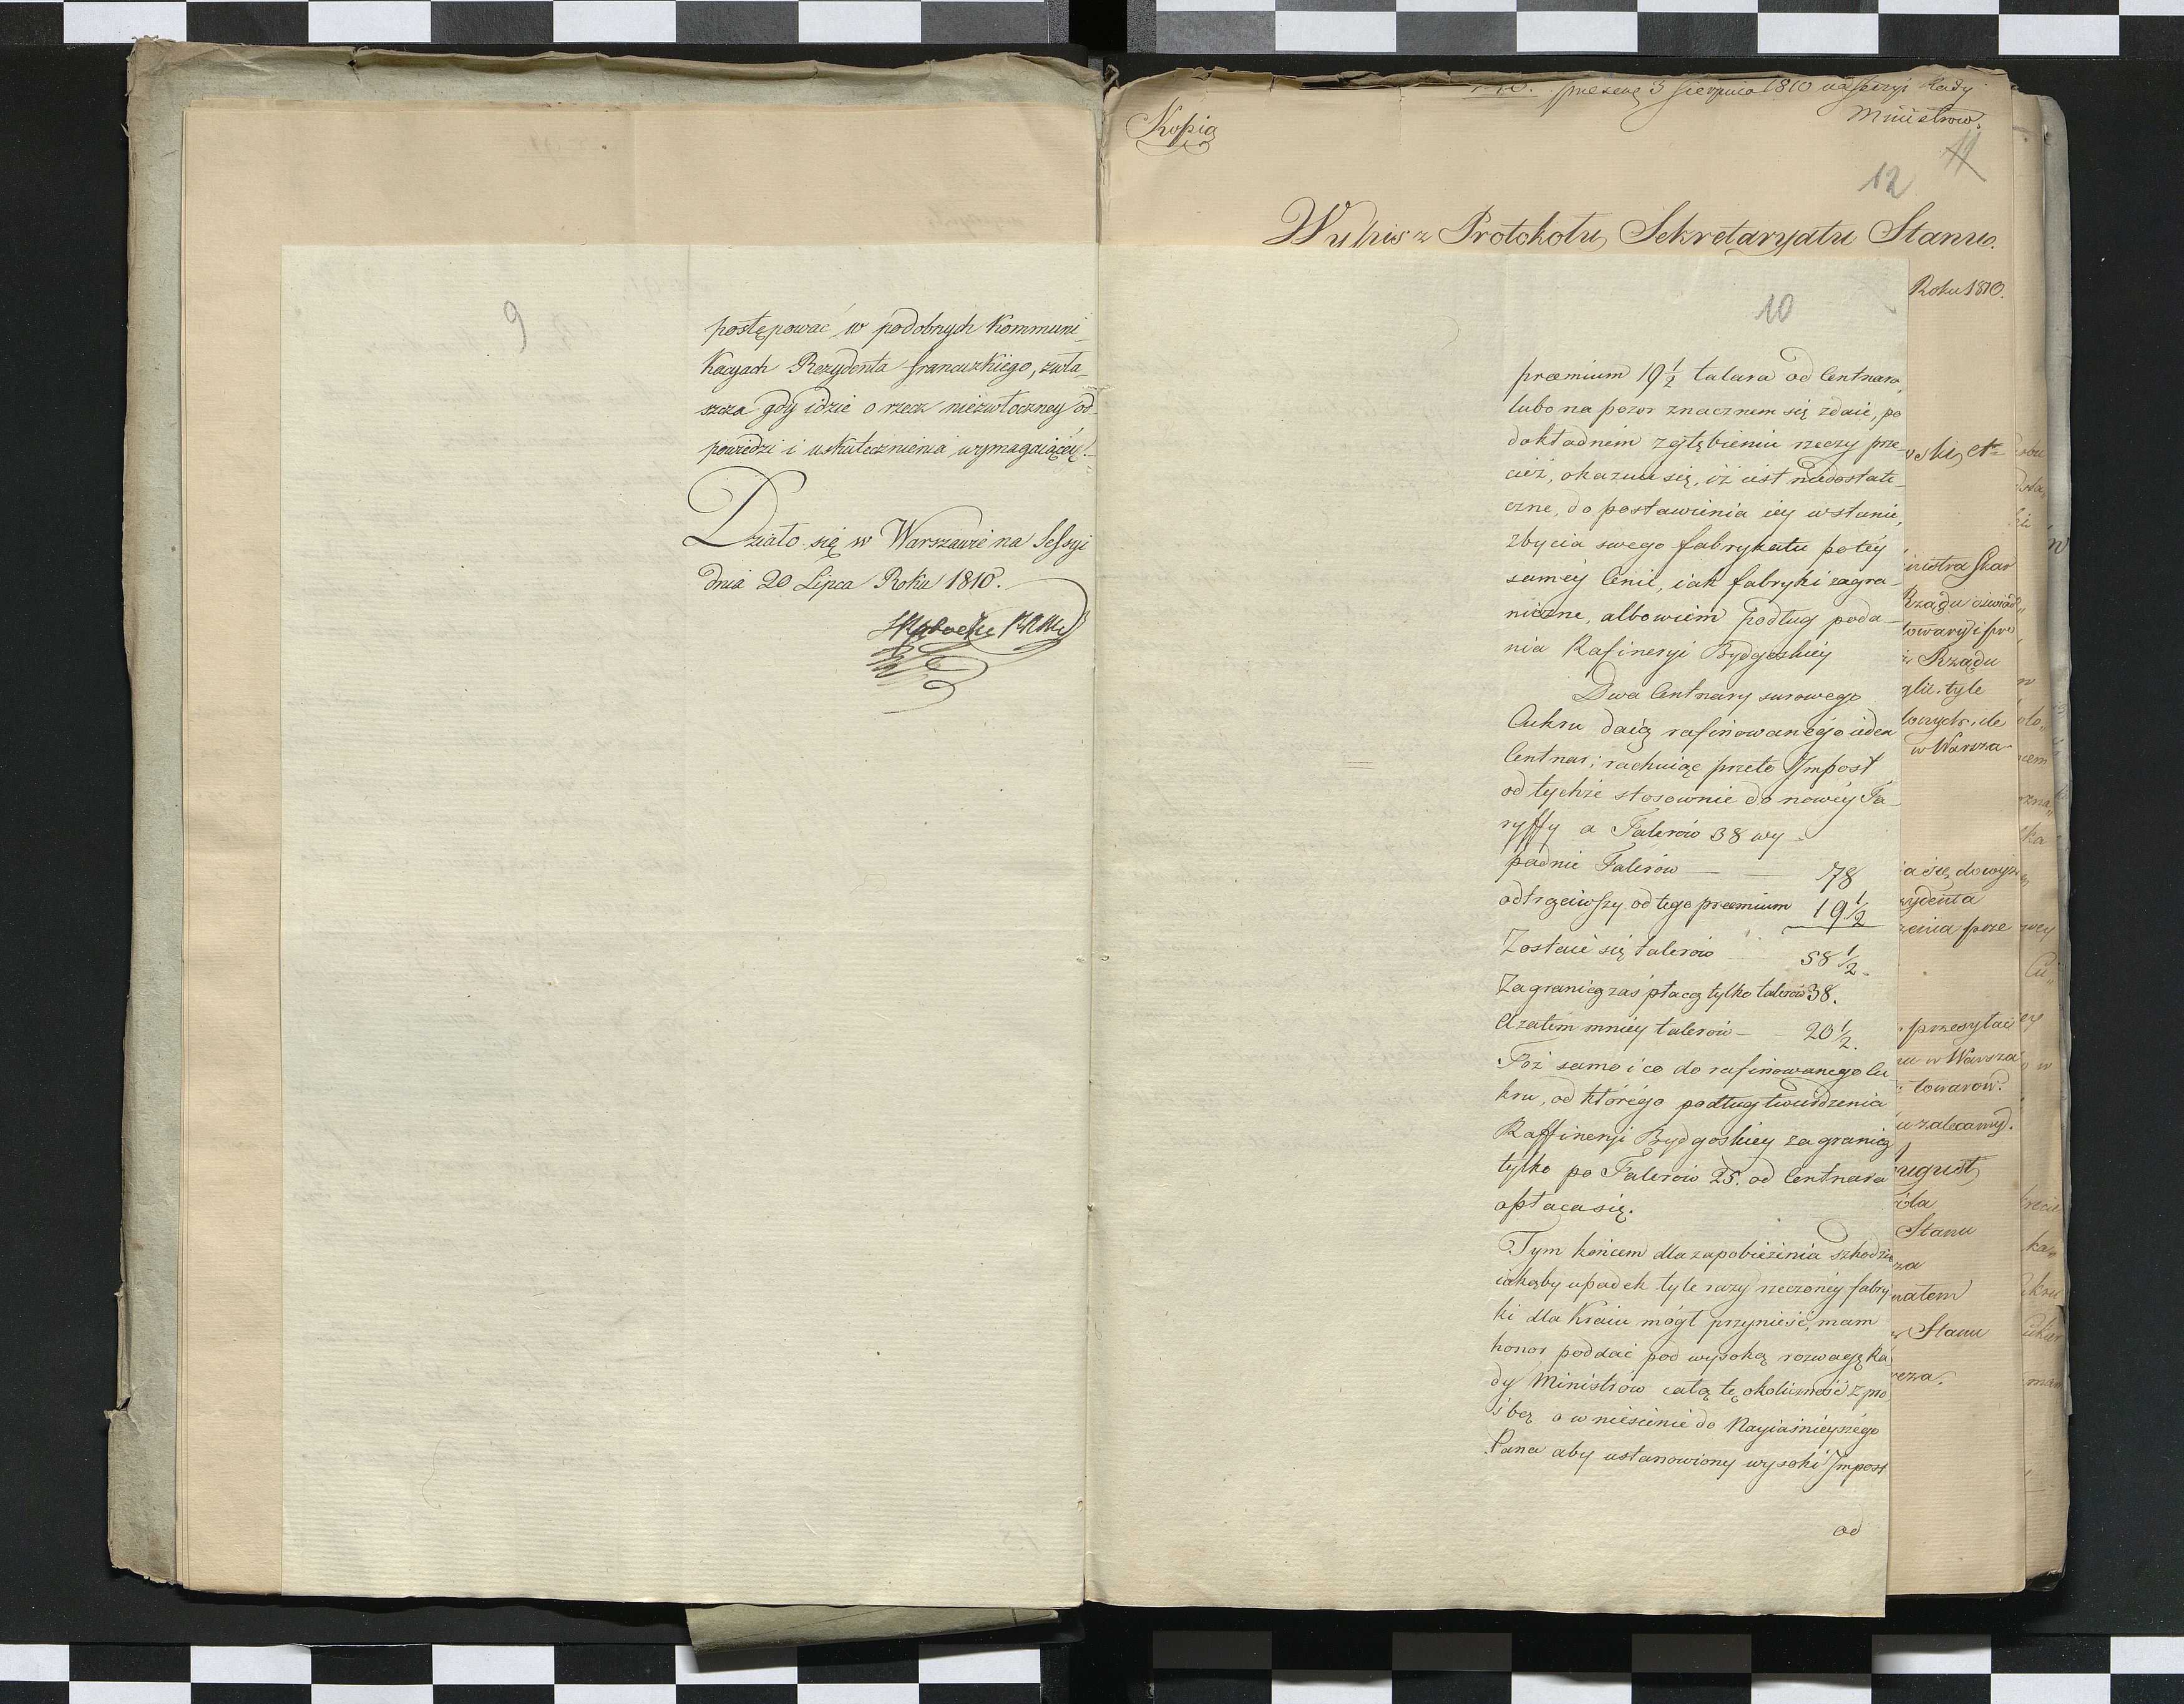 9
postępować w podobnych Kommuni-
kacyach Rezydenta francuzkiego, zwła-
szcza gdy idzie o rzecz niezwłoczney od-
powiedzi i uskutecznienia wymagaiącéy.
Działo się w Warszawie na Sessyi
dnia 20 Lipca Roku 1810.
3 Sierpnia 1810 na sessyi Rady
Ministrow.
Kopia
11
12
Wypis z Protokołu Sekretaryatu Stanu.
Roku 1810.
10
præmium 19 1/2 talara od Centnara,
lubo na pozor znacznem się zdaie, po
dokładném zgłębieniu rzeczy prze-
cież, okazuie się, iż iest niedostate-
czne, do postawienia iey w stanie,
zbycia swego fabrykatu po téy
saméy Cenie, iak fabryki zagra-
niczne, albowiem podług poda-
nia Rafineryi Bydgoskiey
Dwa Centnary surowego
Cukru daią rafinowanégo ieden
Centnar; rachuiąc przeto Impost
od tychże stosownie do nowéy Ta-
ryffy a Talerów 38 wy-
padnie Talerów — — 78
odtrąciwszy od tego præmium 19 1/2
Zostaie się talerów 58 1/2.
Zagranicą zaś płacą tylko talerów 38.
A zatém mniey talerów — 20 1/2.
Toż samo i co do rafinowanego Cu-
kru, od którégo podług twierdzenia
Raffineryi Bydgoskiey za granicą
tylko po Talerów 25. od Centnara
opłaca się.
Tym końcem dla zapobieżenia szkodzie
iakąby upadek tyle razy rzeczonéy fabry-
ki dla Kraiu mógł przynieść, mam
honor poddać pod wysoką rozwagę Ra-
dy Ministrów całą tę okoliczność z pro-
śbą o wniesienie do Nayiaśnieyszégo
Pana aby ustanowiony wysoki Impost
od
ski, etc
inistra Skar
Rządu
tyle
w Warsza-
przesyłać
w Warsza
towarów.
zalecamy.
Stanu
Stanu